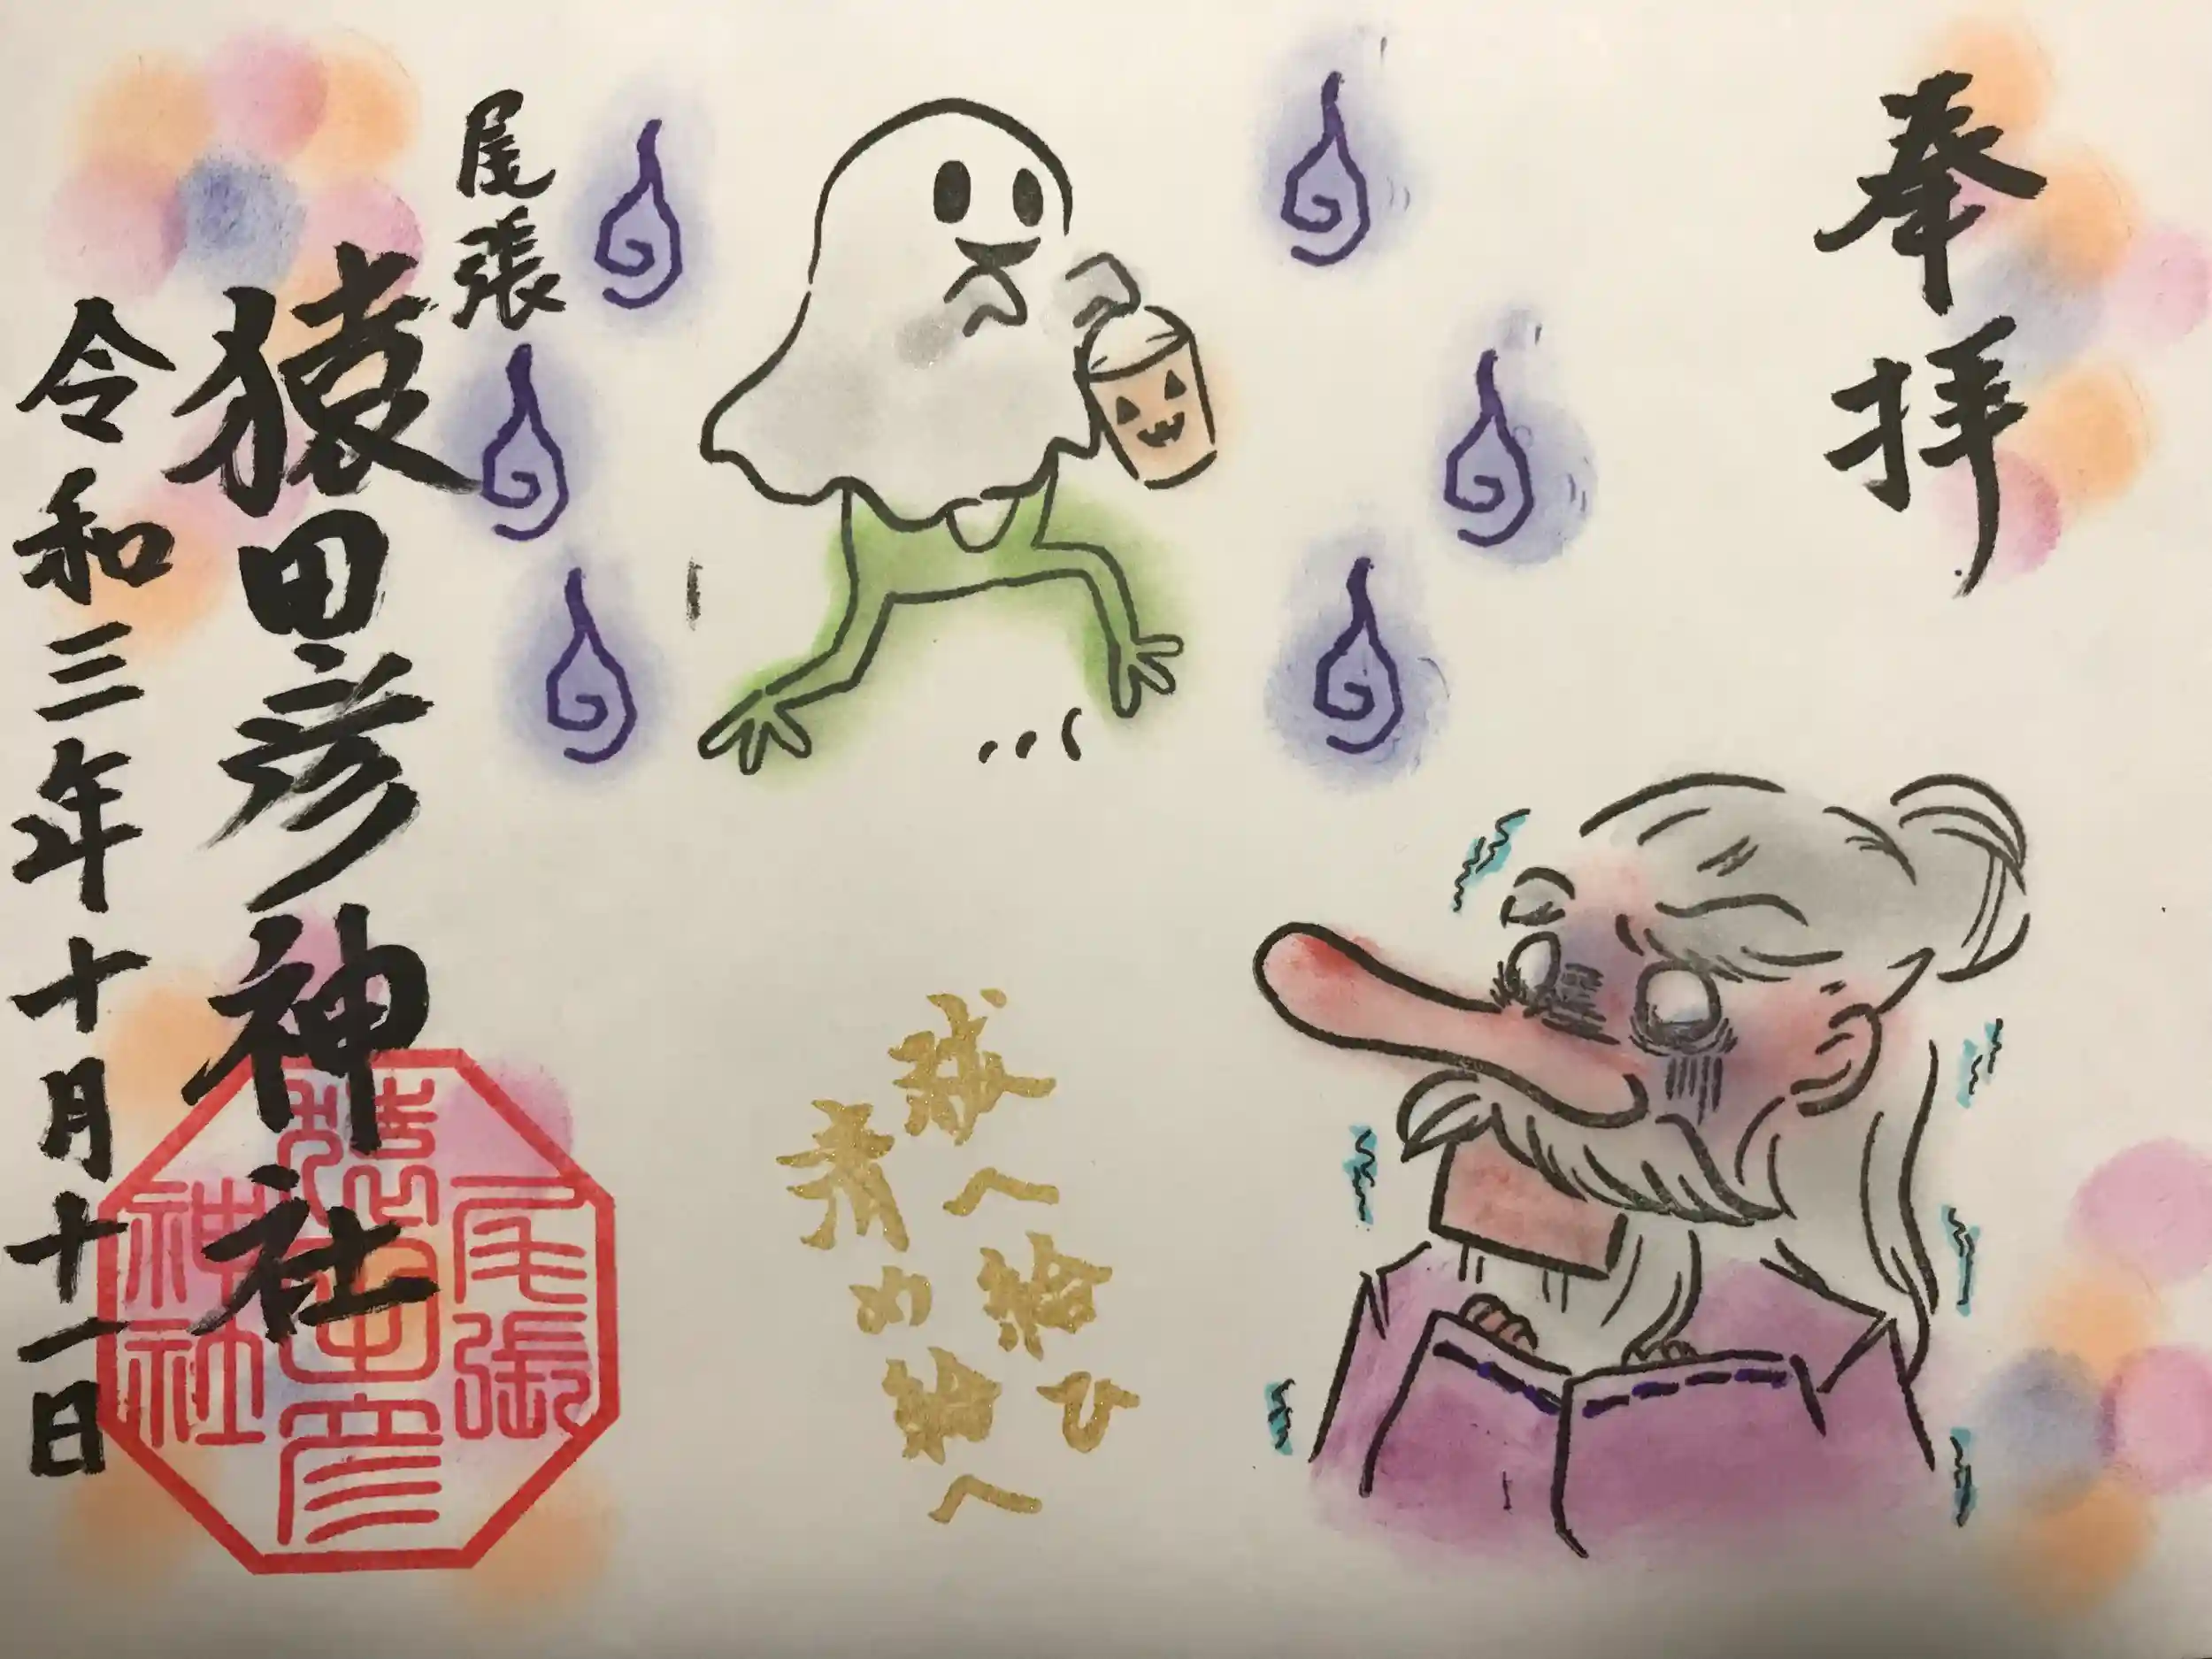 奉拝
祓へ給ひ
清め給へ
尾張
猿田彦神社
令和三年十月十一日
尾張
猿田彦
神社